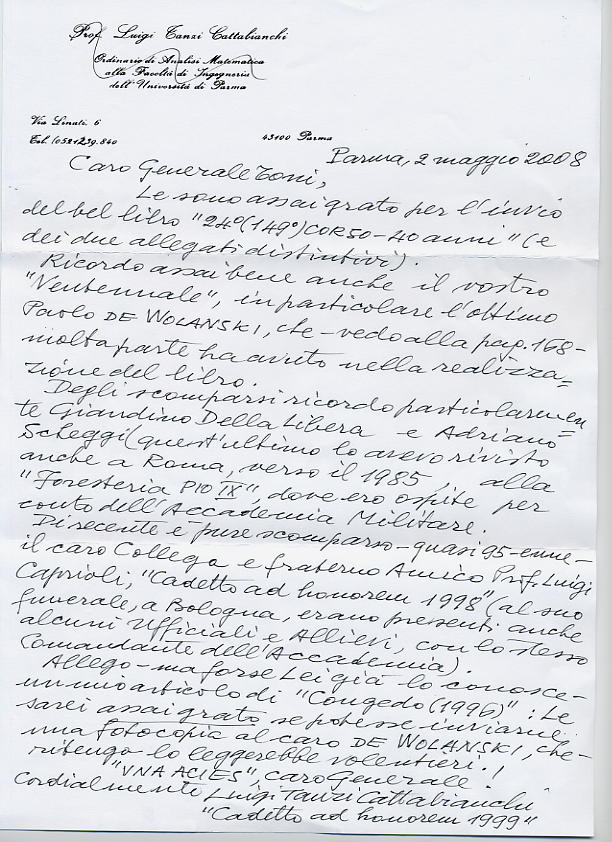 Prof. Luigi Tanzi Cattabianchi
Ordinario di Analisi Matematica
alla Facoltà di Ingegneria
dell'Università di Parma
Via Linati, 6
Tel. (0521) 239.840
43100 Parma
Parma, 2 maggio 2008
Caro Generale Toni,
Le sono assai grato per l'invio
del bel libro "24°(149°) CORSO - 40 anni" (e
dei due allegati distintivi).
Ricordo assai bene anche il vostro
"Ventennale", in particolare l'ottimo
Paolo DE WOLANSKI, che - vedo alla pag. 168 -
molta parte ha avuto nella realizza=
zione del libro.
Degli scomparsi ricordo particolarmen=
te Giandino Della Libera e Adriano
Scheggi (quest'ultimo lo avevo rivisto
anche a Roma, verso il 1985, alla
"Foresteria PIO IX", dove ero ospite per
conto dell'Accademia Militare.
Di recente è pure scomparso - quasi 95-enne -
il caro Collega e fraterno Amico Prof. Luigi
Caprioli, "Cadetto ad honorem 1998" (al suo
funerale, a Bologna, erano presenti anche
alcuni Ufficiali e Allievi, con lo stesso
Comandante dell'Accademia).
Allego - ma forse Lei già lo conosce -
un mio articolo di "Congedo (1996)": Le
sarei assai grato se potesse inviarne
una fotocopia al caro DE WOLANSKI, che -
ritengo - lo leggerebbe volentieri.!
"VNA ACIES", caro Generale!
Cordialmente Luigi Tanzi Cattabianchi
"Cadetto ad honorem 1999"